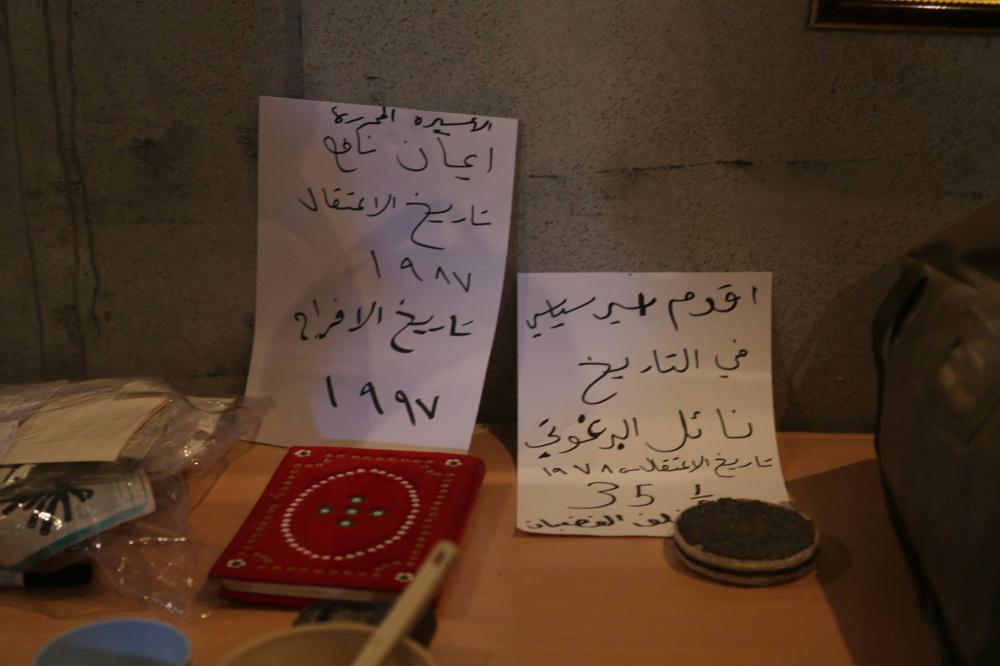 الاسيره المحررة
ايمان نافع
تاريخ الاعتقال
١٩٨٧
تاريخ الافراج
١٩٩٧
اقدم اسير سياسي
في التاريخ
نائل البرغوثي
تاريخ الاعتقال ١٩٧٨
35
خلف القضبان